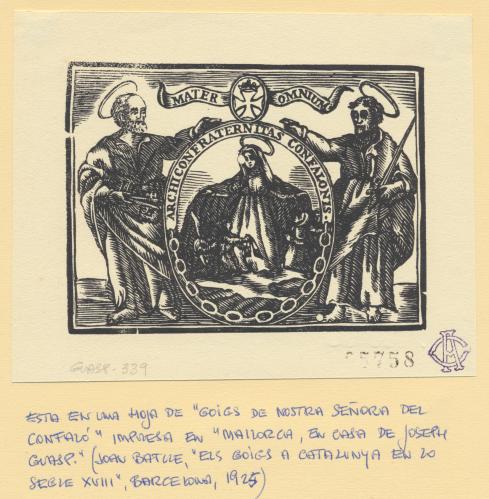 MATER OMNIUM
ARCHICONFRATERNITAS CONFALONIS.
GUASP-339
25758
ESTA EN UNA HOJA DE "GOIGS DE NOSTRA SEÑORA DEL
CONFALÓ" IMPRESA EN "MALLORCA, EN CASA DE JOSEPH
GUASP." (JOAN BATLLE, "ELS GOIGS A CATALUNYA EN LO
SEGLE XVIII", BARCELONA, 1925)